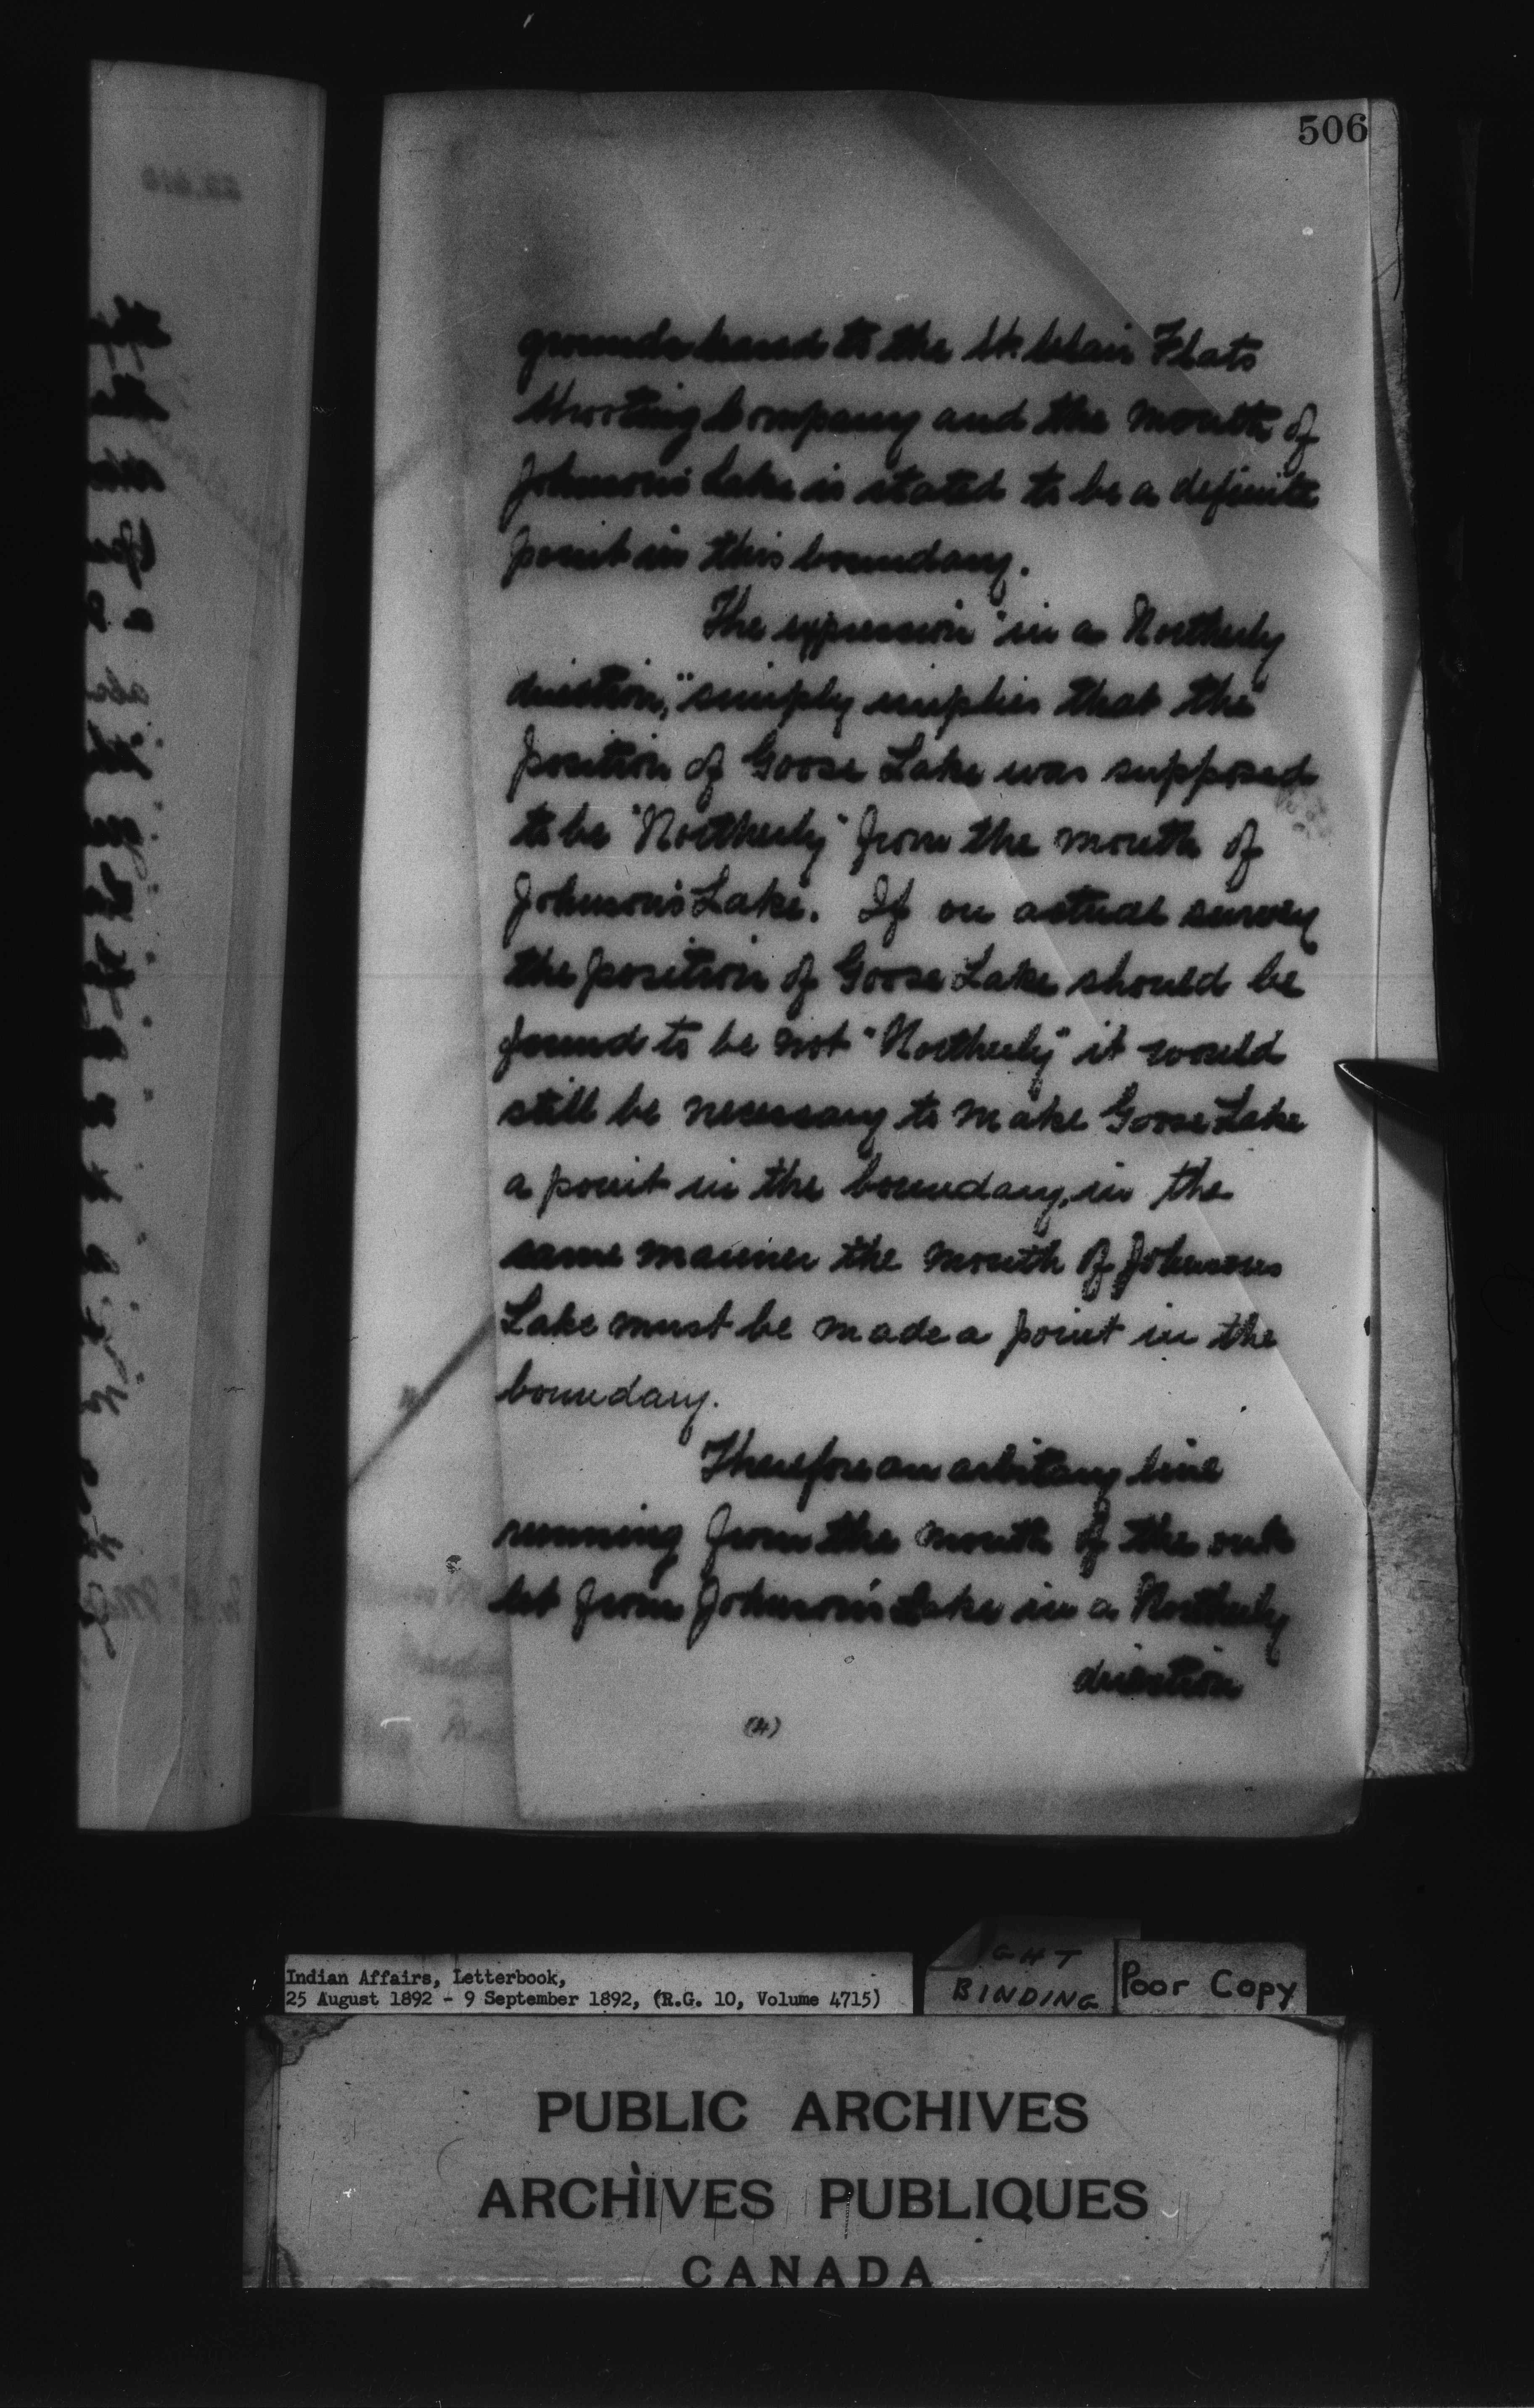 506
grounds leased to the St. Clair Flats
Shooting Company and the mouth of
Johnson's Lake is stated to be a definite
point in this boundary.
The expression "in a Northerly
direction," simply implies that the
position of Goose Lake was supposed
to be "Northerly" from the mouth of
Johnson's Lake. If on actual survey
the position of Goose Lake should be
found to be not "Northerly" it would
still be necessary to make Goose Lake
a point in the boundary, in the
same manner the mouth of Johnsons
Lake must be made a point in the
boundary.
Therefore an arbitary line
running from the mouth of the out
let from Johnson's Lake in a Northerly
direction
(4)
Indian Affairs, Letterbook,
25 August 1892 - 9 September 1892, (R.G. 10, Volume 4715)
GHT
BINDING
Poor Copy
PUBLIC ARCHIVES
ARCHIVES PUBLIQUES
CANADA